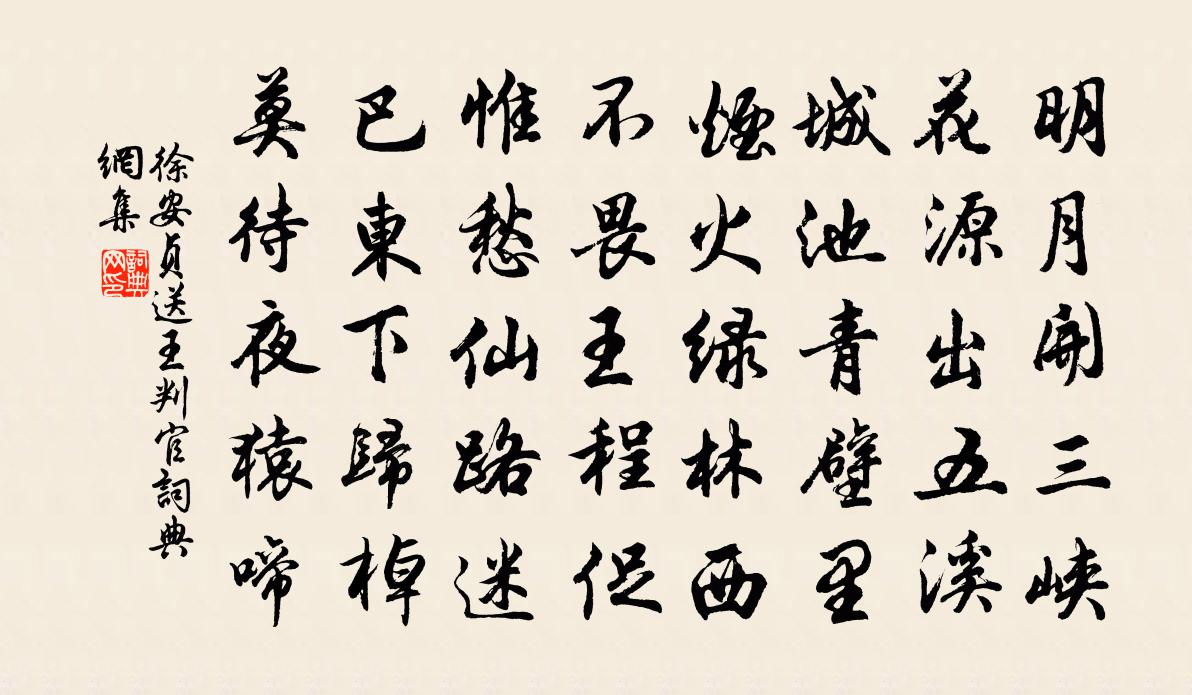 明月開三峽
花源出五溪
城池青壁里
煙火绿林西
不畏王程促
惟愁仙路迷
巴東下歸棹
莫待夜猿啼
徐安貞送王判官詞典
網集
詞典
网印